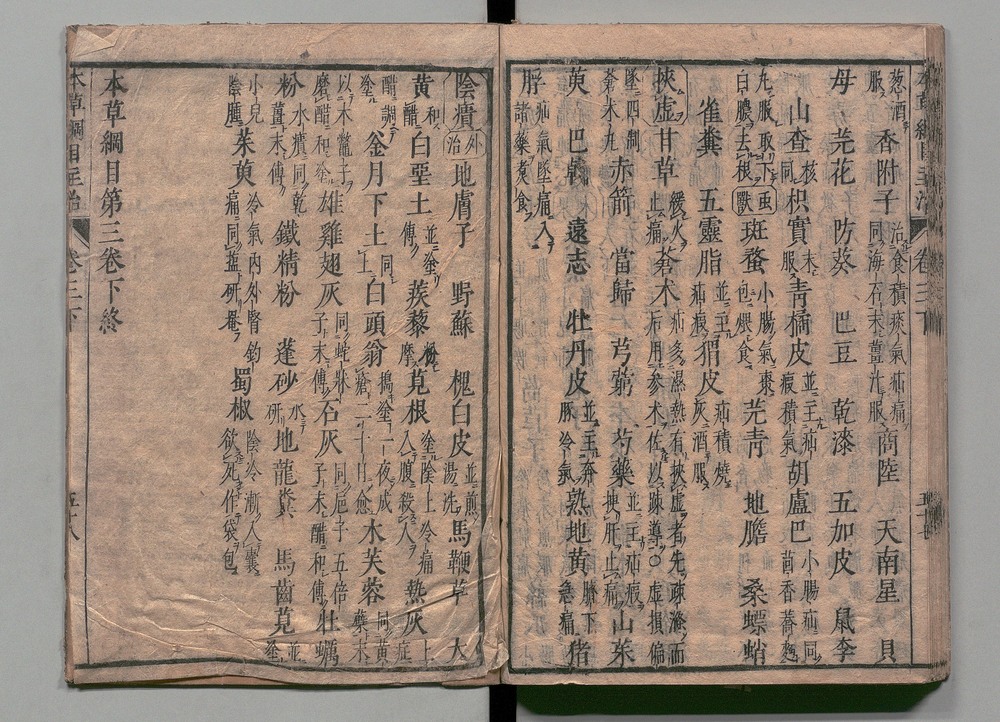 葱酒 香附子 治食積痰氣疝痛同海石末薑汁服 商陸 天南星 貝
母 芫花 防葵 巴豆 乾漆 五加皮 鼠李
山查 核同 枳實 末服 青橘皮 並主疝瘕積氣 胡盧巴 小腸疝同茴香蕎麵
丸服取下 白膿去根 獸 斑蝥 小腸氣棗包煨食 芫青 地膽 桑螵蛸
雀糞 五靈脂 並主疝瘕 猬皮 疝積燒灰酒服
挾虛 甘草 緩火止痛 蒼朮 疝多濕熱有挾虛者先疎滌而后用參朮佐以疎導○虛損偏
墜四制蒼朮丸 赤箭 當歸 芎藭 芍藥 並主疝瘕搜肝止痛 山茱
萸 巴戟 遠志 牡丹皮 並主奔豚冷氣 熟地黃 臍下急痛 猪
脬 疝氣墜痛入諸藥煮食
陰㿉 外治 地膚子 野蘇 槐白皮 並煎湯洗 馬鞭草 大
黃 和醋 白堊土 並塗傅 蒺藜 摩 莧根 塗陰上冷痛入腹殺人 熱灰 上症
醋調塗 釜月下土 同上 白頭翁 擣塗一夜成瘡二十日愈 木芙蓉 同黃蘗末
以木鱉子磨醋和塗 雄雞翅灰 同蛇牀子末傅 石灰 同巵子五倍子末醋和傅 牡蠣
粉 水㿉同乾薑末傅 鐵精粉 蓬砂 水研 地龍糞 馬齒莧 並塗
小兒陰腫 茱萸 冷氣內外腎釣痛同鹽研罨 蜀椒 陰冷漸入囊欲死作袋包
本草綱目第三卷下終
本草綱目主治 卷三下 五十八